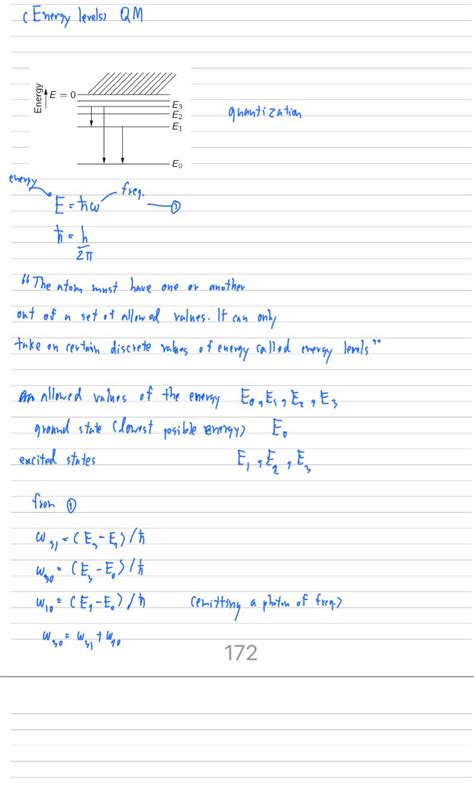 (Energy levels) QM
Energy
E = 0
E₃
E₂
E₁
E₀
quantization
energy
E = ħω
freq.
①
ħ = h
2π
"The atom must have one or another
out of a set of allowed values. It can only
take on certain discrete values of energy called energy levels"
allowed values of the energy E₀, E₁, E₂, E₃
ground state (lowest posible energy) E₀
excited states E₁, E₂, E₃
from ①
ω₃₁ = (E₃ - E₁)/ħ
ω₃₀ = (E₃ - E₀)/ħ
ω₁₀ = (E₁ - E₀)/ħ (emitting a photon of freq.)
ω₃₀ = ω₃₁ + ω₁₀
172